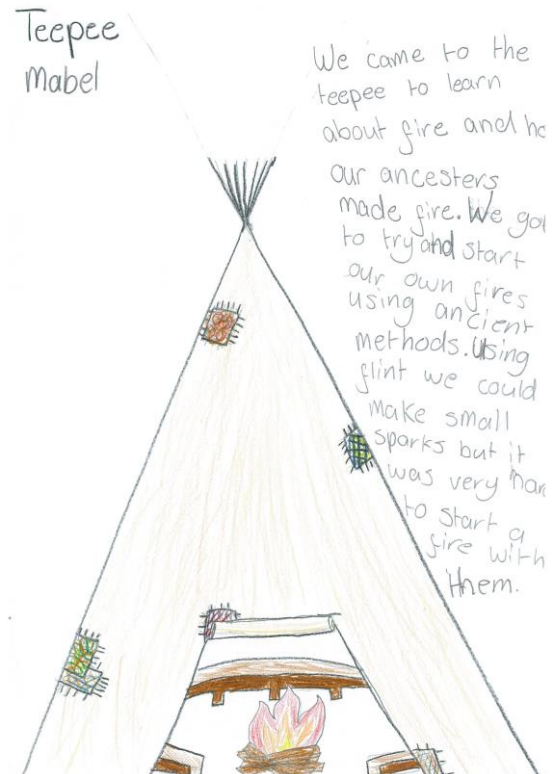 Teepee
Mabel
We came to the
teepee to learn
about fire and
our ancesters
made fire. We
to try and start
our own fires
using ancient
methods. Using
flint we could
make small
sparks but it
was very
to start a
fire with
them.